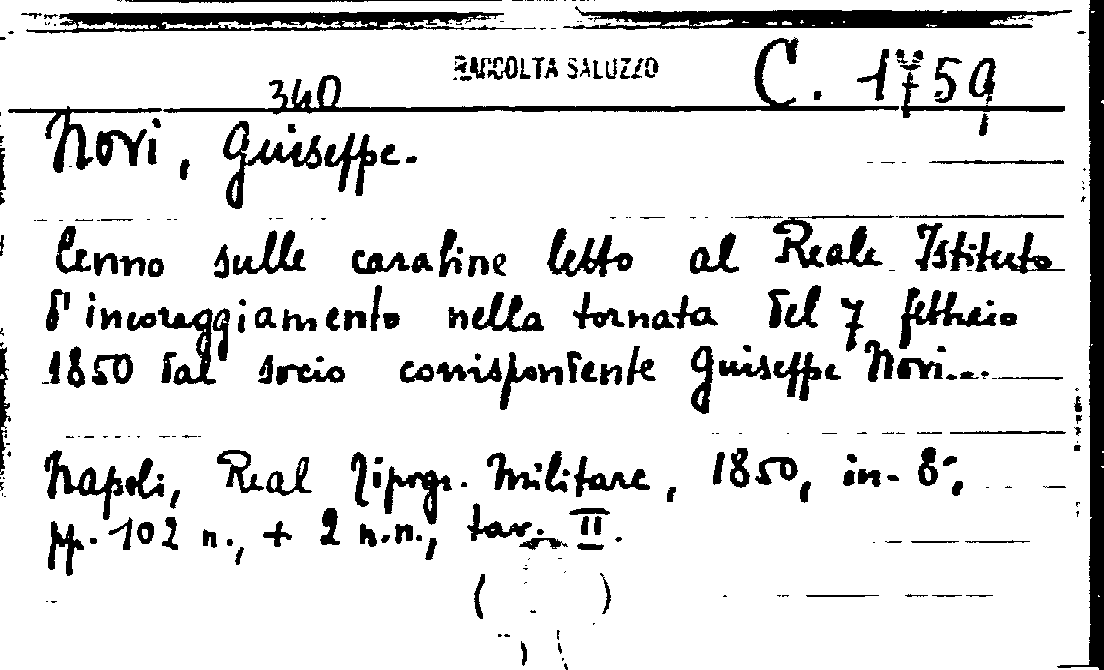 RACCOLTA SALUZZO
C. 1759
340
Novi, Giuseppe.
Cenno sulle carabine letto al Reale Istituto
d'incoraggiamento nella tornata del 7 febbraio
1850 dal socio corrispondente Giuseppe Novi...
Napoli, Real Tipogr. Militare, 1850, in-8°,
pp. 102 n., + 2 n.n., tav. II.
( )